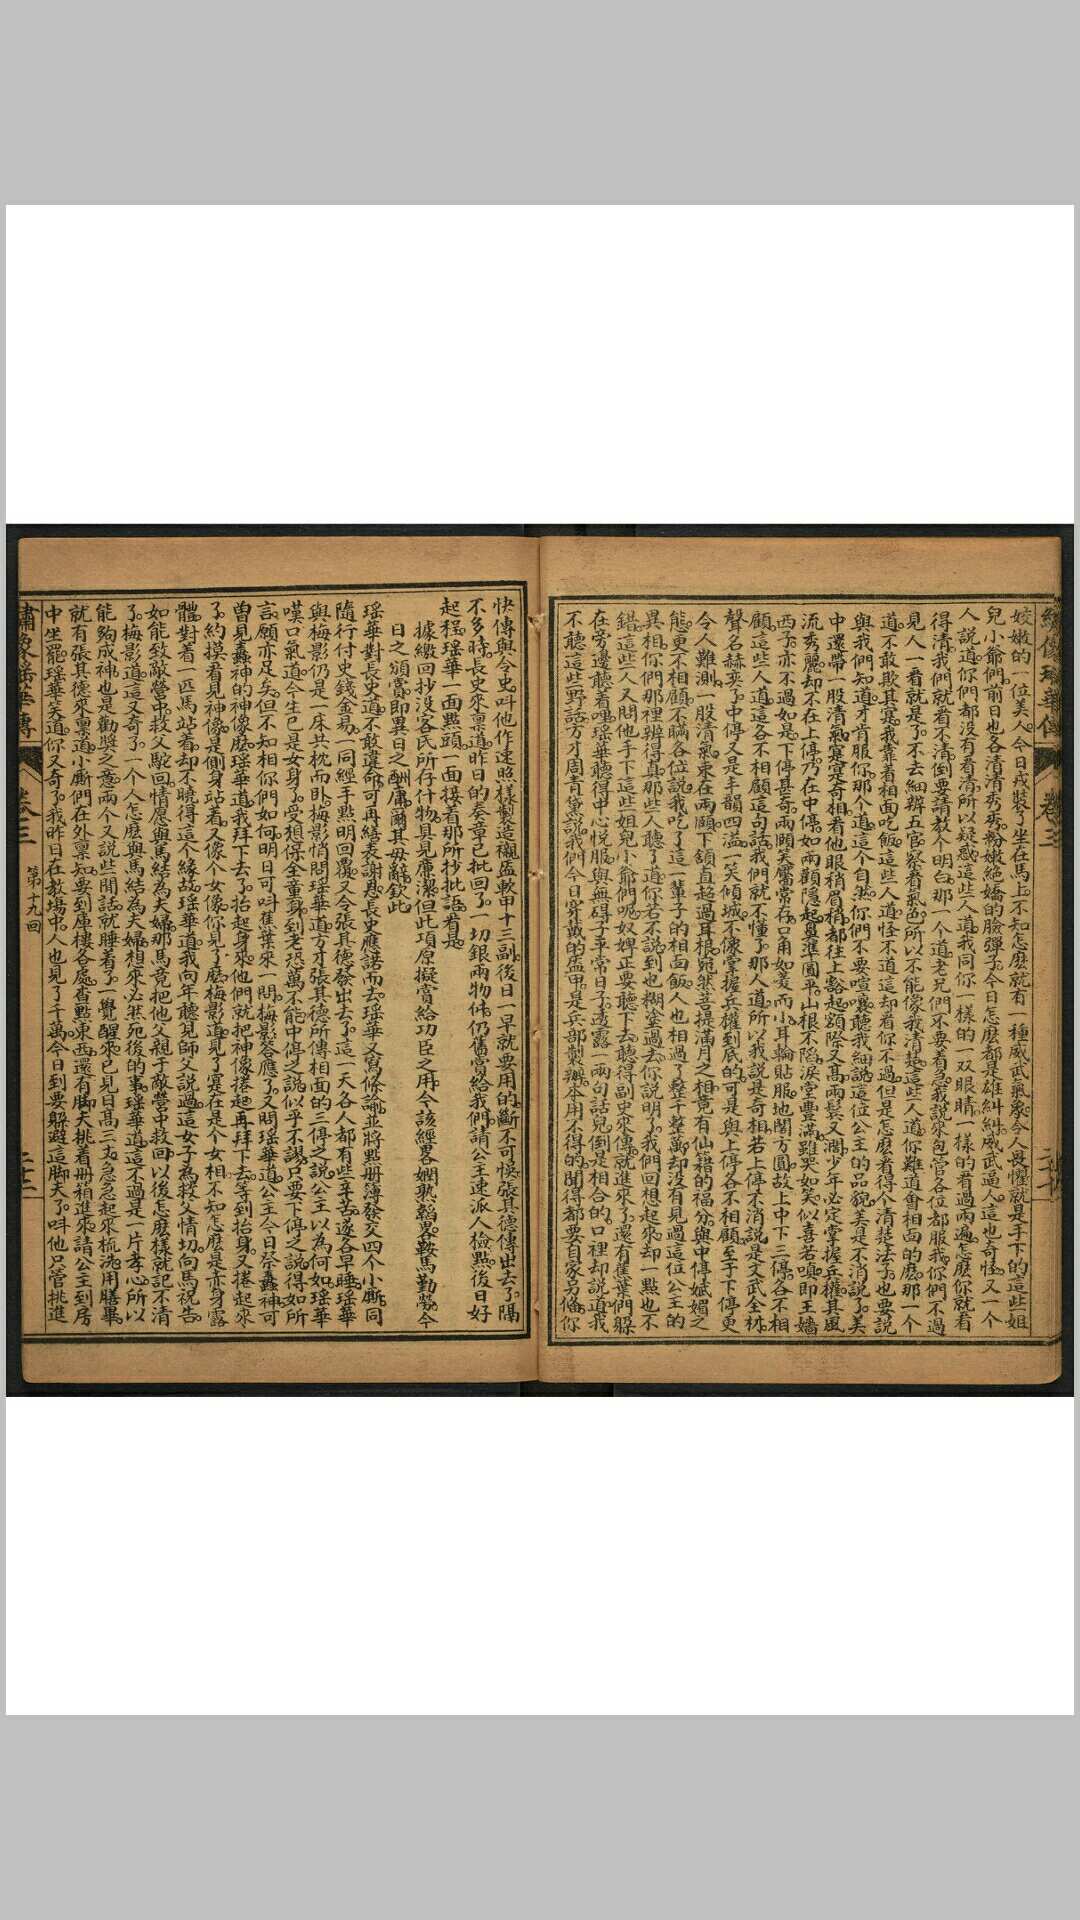 姣嫩的一位美人。今日戎裝了坐在馬上。不知怎麽就有一種威武氣象令人畏懼。就是手下的這些姐
兒小爺們。前日也各清清秀秀。粉嫩絕嬌的臉彈子。今日怎麽都是雄糾糾威武逼人。這也奇怪。又一个
人說道。你們都没有看清。所以疑惑。這些人道。我同你一樣的一双眼睛。一樣的看過兩遍。怎麽你就看
得清。我們就看不清。倒要請教个明白。那一个道。老兄們不要着急。我說來包管各位都服我。你們不過
見人一看就是了。不去細辨五官。察看氣色。所以不能像我清楚。這些人道。你難道會相面的麽。那一个
道。不敢欺其寔我靠着相面吃飯。這些人道。怪不道這却看你不過。但是怎麽看得个清楚法子。也要說
與我們知道。才肯服你。那个道。這个自然。你們不要喧嚷。聽我細說。這位公主的品貌。美是不消說了。美
中還帶一股清氣。寔寔奇相。看他眼稍眉梢。都往上豁起。額際又高。兩鬂又濶。少年必定掌握兵權。其風
流秀麗。却不在上停。乃在中停。如兩顴隱起。鼻準圓平。山根不陷。淚堂豐滿。雖哭如笑。似喜若嗔。即王嬙
西子。亦不過如是。下停甚奇。兩頤笑靨常存。口角如菱而小。耳輪貼服。地閣方圓。故上中下三停。各不相
顧。這些人道。這各不相顧這句話。我們就不懂了。那人道。所以我說是奇相。若上停不消說是文武全材。
聲名赫奕了。中停又是丰韻四溢。一笑傾城。不像掌握兵權到底的。可是與上停各不相顧。至于下停更
令人難測。一股清氣。束在兩頤。下頷直起過耳根。宛然菩提滿月之相。竟有仙籍的福分。與中停斌媚之
態。更不相顧。不瞞各位說。我吃了這一輩子的相面飯。人也相過了整千整萬。却没有見過這位公主的
異相。你們那裡辨得真。那些人聽了道。你若不說到也糊塗過去。你說明了。我們回想起來。却一點也不
錯。這些人又問他手下這些姐兒小爺們呢。奴婢正要聽下去。聽得副史來傳。就進來了。還有蕉葉們躲
在旁邊聽着哩。瑤華聽得中心悅服。與無碍子平常日子。透露一兩句話兒。倒是相合的。口裡却說道。我
不聽這些野話。方才周青黛說。我們今日穿戴的盔甲。是兵部製辦。本用不得的。聞得都要自家另俻。你
快傳與令史。叫他作速照樣製造襯盔軟甲十三副。後日一早就要用的。斷不可悮。張其德傳出去了。隔
不多時。長史來禀道。昨日的奏章已批回了。一切銀兩物件。仍舊賞給我們。請公主速派人檢點。後日好
起程。瑤華一面點頭。一面接着那所抄批語。看是。
據繳回抄没客氏所存什物。具見廉潔。但此項原擬賞給功臣之用。今該經畧嫻熟韜畧。鞍馬勤勞。今
日之頒賞。即異日之酬庸。爾其毋辭。欽此。
瑤華對長史道。不敢違命。可再繕表謝恩。長史應諾而去。瑤華又寫條諭。並將點册簿發交四个小廝。同
隨行付史錢金易。一同經手點明回覆。又令張其德發出去了。這一天各人都有些辛苦。遂各早睡。瑤華
與梅影仍是一床共枕而卧。梅影悄問瑤華道。方才張其德所傳相面的三停之說。公主以為何如。瑤華
嘆口氣道。今生已是女身了。受想保全童身到老。恐萬不能。中停之說似乎不謁。只要下停之說得如所
言。願亦足矣。但不知相你們如何。明日可叫蕉葉來一問。梅影答應了。又問瑤華道。公主今日祭蠹神。可
曾見蠹神的神像麽。瑤華道。我拜下去了。抬起身來。他們就把神像捲起。再拜下去。等到抬身。又捲起來
了。約摸看見神像是側身站着。又像个女像。你見了麽。梅影道。見了。寔在是个女相。不知怎麽是赤身露
體。對着一匹馬站着。却不曉得這个緣故。瑤華道。我向年聽見師父說過。這女子為救父情切。向馬祝告。
如能致敵營中救父駝回。情愿與馬結為夫婦。那馬竟把他父親于敵營中救回。以後怎麽樣。就記不清
了。梅影道。這又奇了。一个人怎麽與馬結為夫婦。想來必然死後的事。瑤華道。這不過是一片孝心。所以
能夠成神。也是勸獎之意。兩个又說些閒話。就睡着了。一覺醒來。已見日高三丈。急急起來梳洗。用膳畢。
就有張其德來禀道。小廝們在外禀知。要到庫樓各處查點東西。還有脚夫挑着册箱進來。請公主到房
中坐罷。瑤華笑道。你又奇了。我昨日在教場中。人也見了千萬。今日到要躲避這脚夫了。叫他只管挑進
繡像瑤華傳
卷三
第十九回